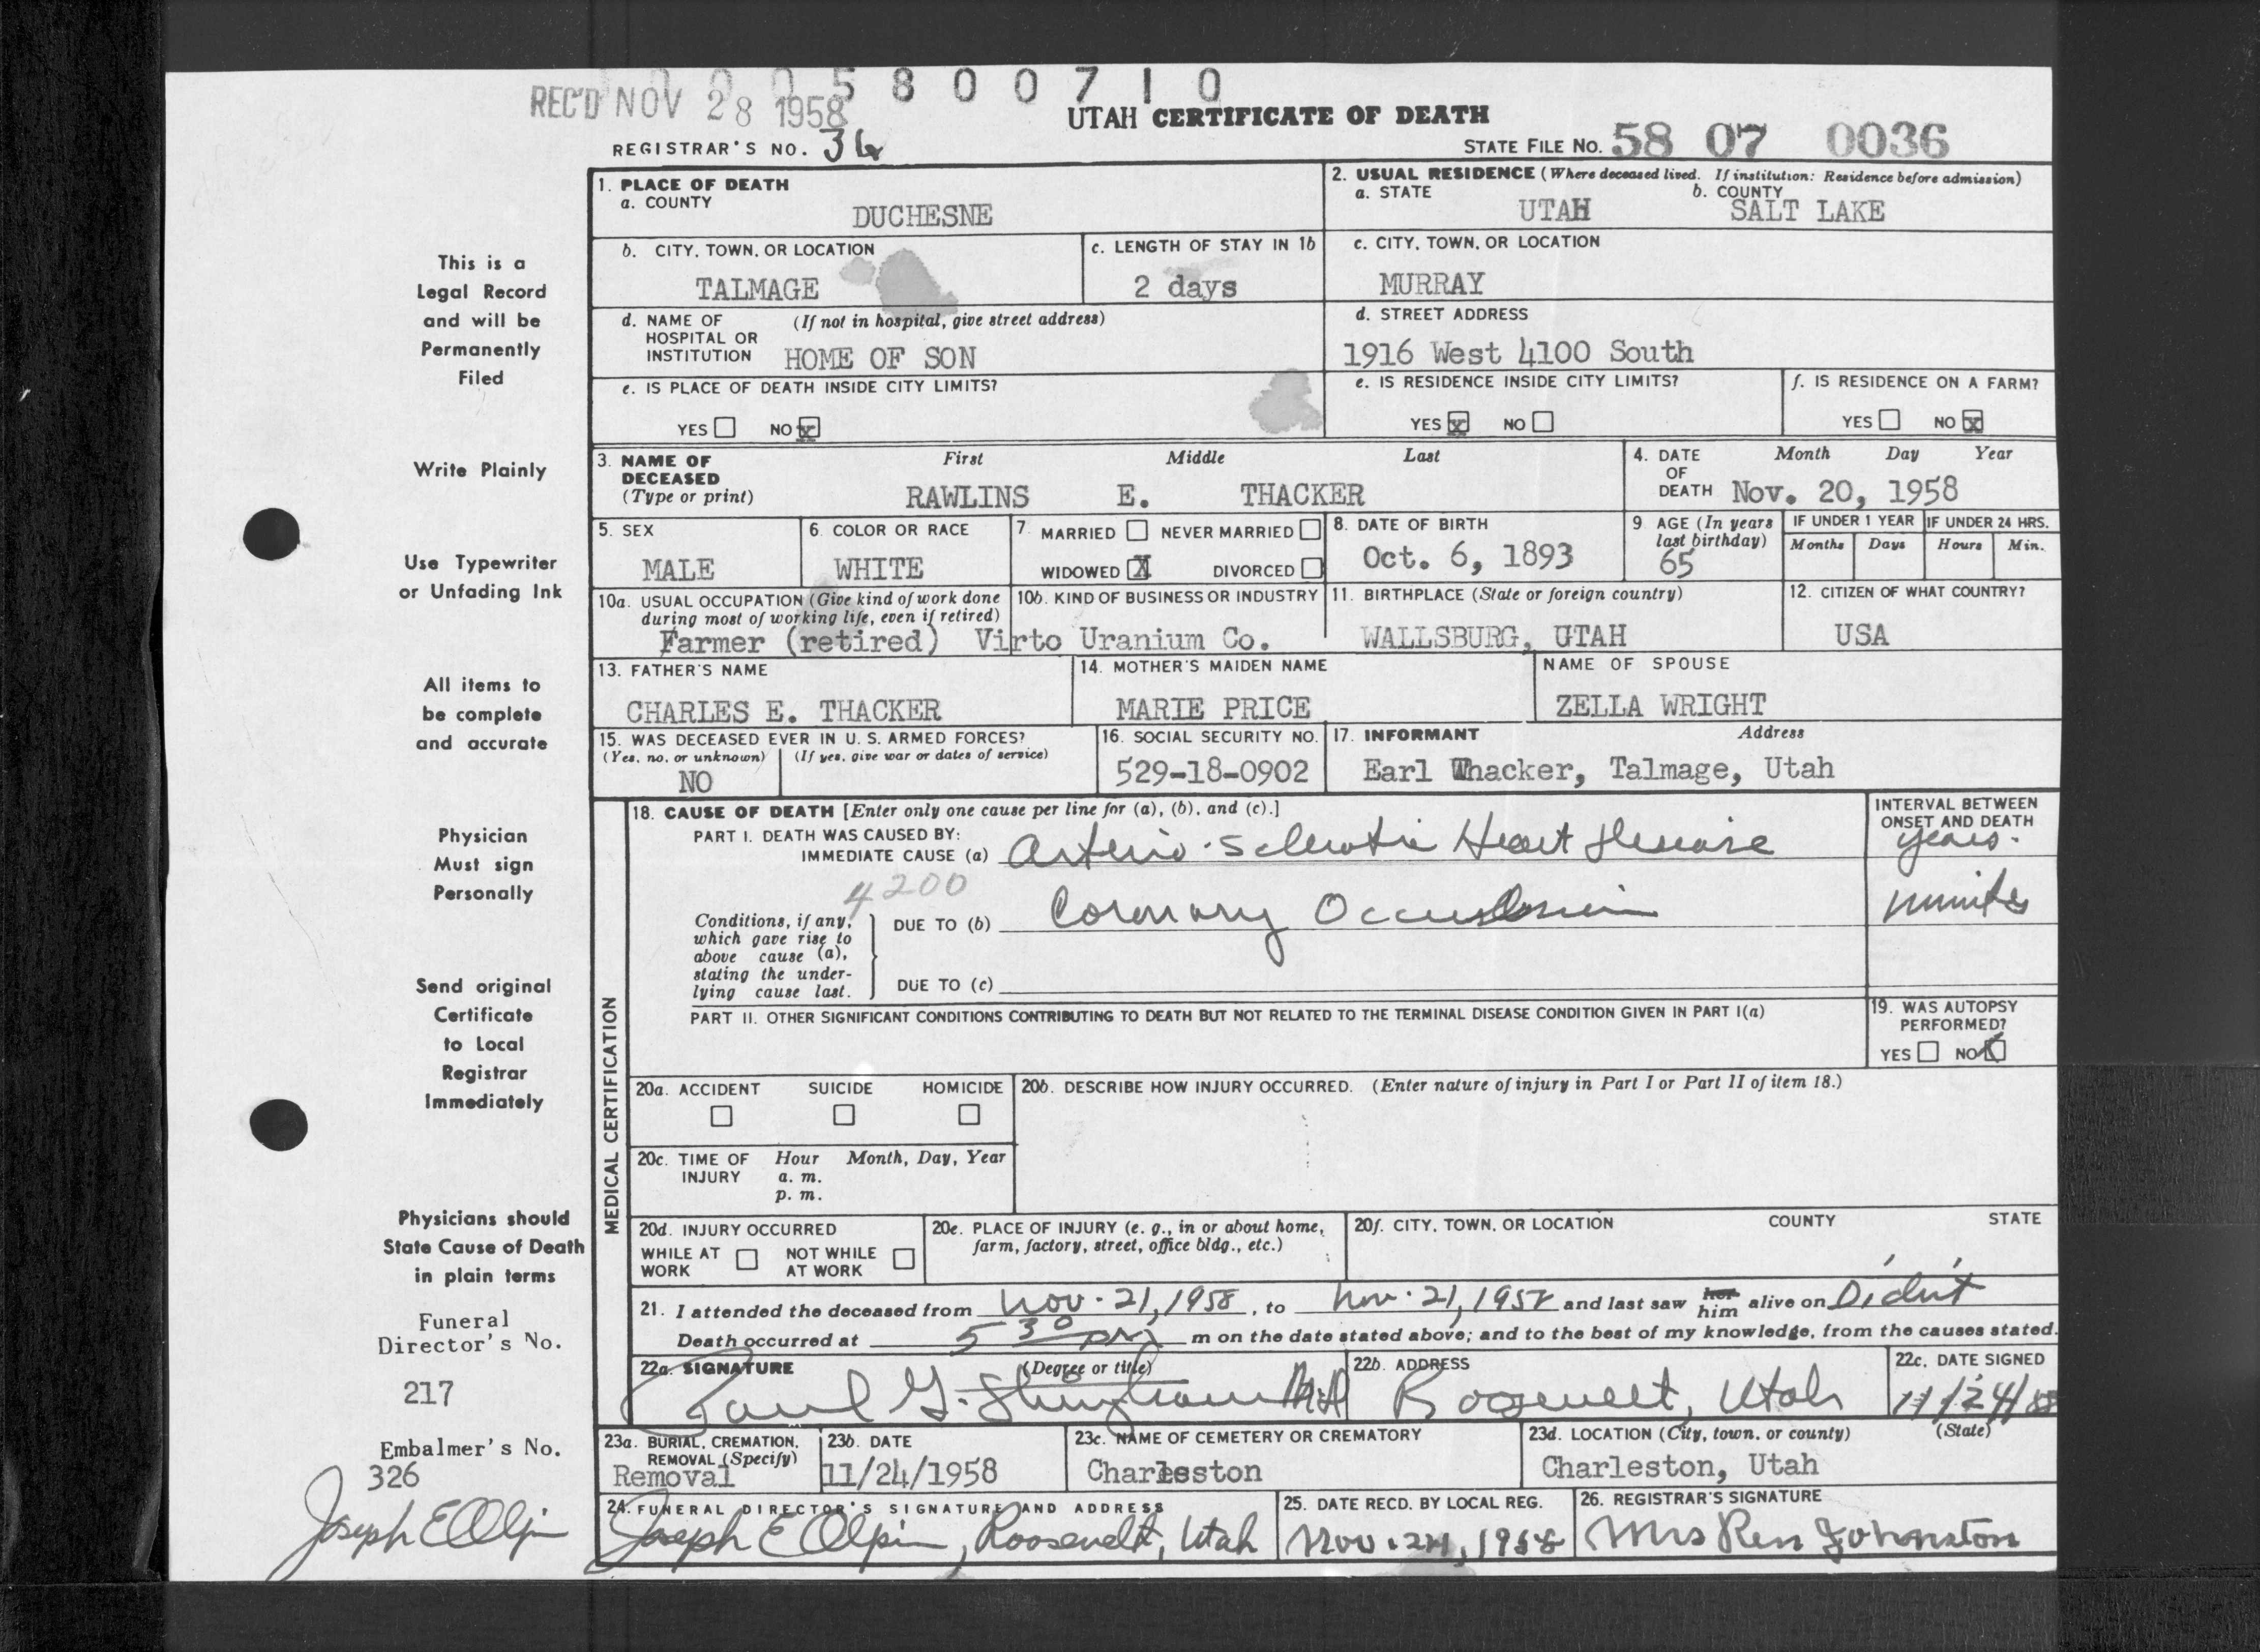 0 0 0 5 8 0 0 7 1 0
REC'D NOV 28 1958
UTAH CERTIFICATE OF DEATH
REGISTRAR'S NO. 36
STATE FILE NO. 58 07 0036
This is a
Legal Record
and will be
Permanently
Filed
Write Plainly
Use Typewriter
or Unfading Ink
All items to
be complete
and accurate
Physician
Must sign
Personally
Send original
Certificate
to Local
Registrar
Immediately
Physicians should
State Cause of Death
in plain terms
Funeral
Director's No.
217
Embalmer's No.
326
Joseph E Olpin
1. PLACE OF DEATH
a. COUNTY
DUCHESNE
2. USUAL RESIDENCE (Where deceased lived. If institution: Residence before admission)
a. STATE b. COUNTY
UTAH SALT LAKE
b. CITY, TOWN, OR LOCATION
TALMAGE
c. LENGTH OF STAY IN 1b
2 days
c. CITY, TOWN, OR LOCATION
MURRAY
d. NAME OF (If not in hospital, give street address)
HOSPITAL OR
INSTITUTION HOME OF SON
d. STREET ADDRESS
1916 West 4100 South
e. IS PLACE OF DEATH INSIDE CITY LIMITS?
YES NO X
e. IS RESIDENCE INSIDE CITY LIMITS?
YES X NO
f. IS RESIDENCE ON A FARM?
YES NO X
3. NAME OF First Middle Last
DECEASED
(Type or print) RAWLINS E. THACKER
4. DATE Month Day Year
OF
DEATH Nov. 20, 1958
5. SEX
MALE
6. COLOR OR RACE
WHITE
7. MARRIED NEVER MARRIED
WIDOWED X DIVORCED
8. DATE OF BIRTH
Oct. 6, 1893
9 AGE (In years
last birthday)
65
IF UNDER 1 YEAR IF UNDER 24 HRS.
Months Days Hours Min.
10a. USUAL OCCUPATION (Give kind of work done
during most of working life, even if retired)
Farmer (retired)
10b. KIND OF BUSINESS OR INDUSTRY
Virto Uranium Co.
11. BIRTHPLACE (State or foreign country)
WALLSBURG, UTAH
12. CITIZEN OF WHAT COUNTRY?
USA
13. FATHER'S NAME
CHARLES E. THACKER
14. MOTHER'S MAIDEN NAME
MARIE PRICE
NAME OF SPOUSE
ZELLA WRIGHT
15. WAS DECEASED EVER IN U. S. ARMED FORCES?
(Yes, no, or unknown) (If yes, give war or dates of service)
NO
16. SOCIAL SECURITY NO.
529-18-0902
17. INFORMANT Address
Earl Thacker, Talmage, Utah
MEDICAL CERTIFICATION
18. CAUSE OF DEATH [Enter only one cause per line for (a), (b), and (c).]
PART I. DEATH WAS CAUSED BY:
IMMEDIATE CAUSE (a) Arterio-Sclerotic Heart disease
INTERVAL BETWEEN
ONSET AND DEATH
years.
4200
Conditions, if any,
which gave rise to
above cause (a),
stating the under-
lying cause last.
DUE TO (b) Coronary Occlusion
minutes
DUE TO (c)
PART II. OTHER SIGNIFICANT CONDITIONS CONTRIBUTING TO DEATH BUT NOT RELATED TO THE TERMINAL DISEASE CONDITION GIVEN IN PART I(a)
19. WAS AUTOPSY
PERFORMED?
YES NO X
20a. ACCIDENT SUICIDE HOMICIDE
20b. DESCRIBE HOW INJURY OCCURRED. (Enter nature of injury in Part I or Part II of item 18.)
20c. TIME OF Hour Month, Day, Year
INJURY a. m.
p. m.
20d. INJURY OCCURRED
WHILE AT NOT WHILE
WORK AT WORK
20e. PLACE OF INJURY (e. g., in or about home,
farm, factory, street, office bldg., etc.)
20f. CITY, TOWN, OR LOCATION COUNTY STATE
21. I attended the deceased from Nov. 21, 1958, to Nov. 21, 1958 and last saw her him alive on Didn't
Death occurred at 5 30 PM m on the date stated above; and to the best of my knowledge, from the causes stated.
22a. SIGNATURE (Degree or title)
Paul G. Stringham MD
22b. ADDRESS
Roosevelt, Utah
22c. DATE SIGNED
11/24/58
23a. BURIAL, CREMATION,
REMOVAL (Specify)
Removal
23b. DATE
11/24/1958
23c. NAME OF CEMETERY OR CREMATORY
Charleston
23d. LOCATION (City, town, or county) (State)
Charleston, Utah
24. FUNERAL DIRECTOR'S SIGNATURE AND ADDRESS
Joseph E Olpin, Roosevelt, Utah
25. DATE RECD. BY LOCAL REG.
Nov. 24, 1958
26. REGISTRAR'S SIGNATURE
Mrs Ren Johnston